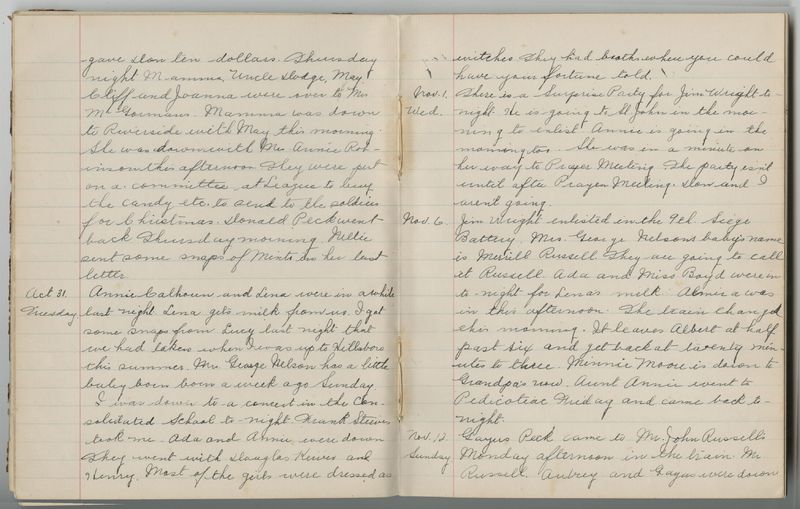 gave Don ten dollars. Thursday
night Mamma, Uncle Dodge, May
Cliff and Joanna were over to Mrs
McGormans. Mamma was down
to Riverside with May this morning.
She was down with Mrs Annie Rob-
inson this afternoon They were put
on a committee at League to buy
the candy etc. to send to the soldiers
for Christmas. Donald Peck went
back Thursday morning. Nellie
sent some snaps of Minto in her last
letter
Oct 31. Annie Calhoun and Lena were in a while
Tuesday last night Lena gets milk from us. I got
some snaps from Lucy last night that
we had taken when I was up to Hillsboro
this summer. Mrs. George Nelson has a little
baby born born a week ago Sunday.
I was down to a concert in the Con-
solidated School to-night Frank Steeves
took me. Ada and Annie were down
They went with Douglas and
Henry. Most of the girls were dressed as
witches They had booths where you could
have your fortune told.
Nov. 1. There is a Surprise Party for Jim Wright to-
Wed. night He is going to St John in the mor-
ning to enlist Annie is going in the
morning too. She was in a minute on
her way to Prayer Meeting. The party isn't
until after Prayer Meeting. Don and I
aren't going.
Nov. 6. Jim Wright enlisted in the 9th Seige
Battery. Mrs. George Nelsons baby's name
is Merrill Russell They are going to call
it Russell Ada and Miss Boyd were in
to-night for Lena's milk Almira was
in this afternoon. The train changed
this morning. It leaves Albert at half
past six and get back at twenty min-
utes to three. Minnie Moore is down to
Grandpa's now. Aunt Annie went to
Pedicotiac Friday and came back to-
night.
Nov. 12. Gayus Peck came to Mr. John Russell's
Sunday Monday afternoon in the train. Mr
Russell. Aubrey and Gayus were down